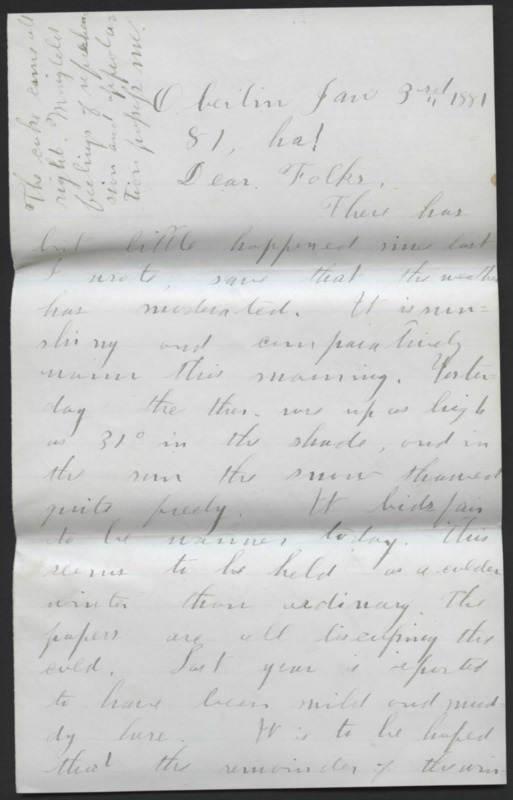 The cake came all
right. Mingled
feelings of
sion and
tion me.
Oberlin Jan 3rd 1881
81, ha!
Dear Folks,
There has
but little happened since last
I wrote, save that the weather
has moderated. It is sun=
shiny and comparatively
warm this morning. Yester
day the ther. was up as high
as 31° in the shade, and in
the sun the snow thawed
quite freely. It bids fair
to be warmer today. This
seems to be held as a colder
winter than ordinary. The
papers are all discussing the
cold. Last year is reported
to have been mild and mud
dy here. It is to be hoped
that the remainder of the win